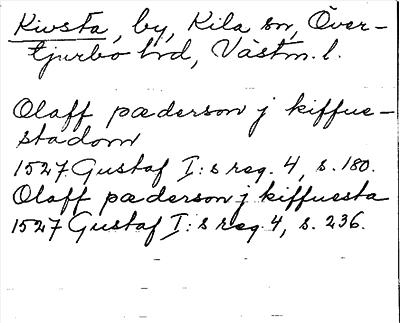 Kivsta, by, Kila sn, Över-
tjurbo hd, Västm. l.
Olaff pæderson j kiffue-
stadom
1527 Gustaf I:s reg. 4, s. 180.
Olaff pæderson j kiffuesta
1527 Gustaf I:s reg. 4, s. 236.